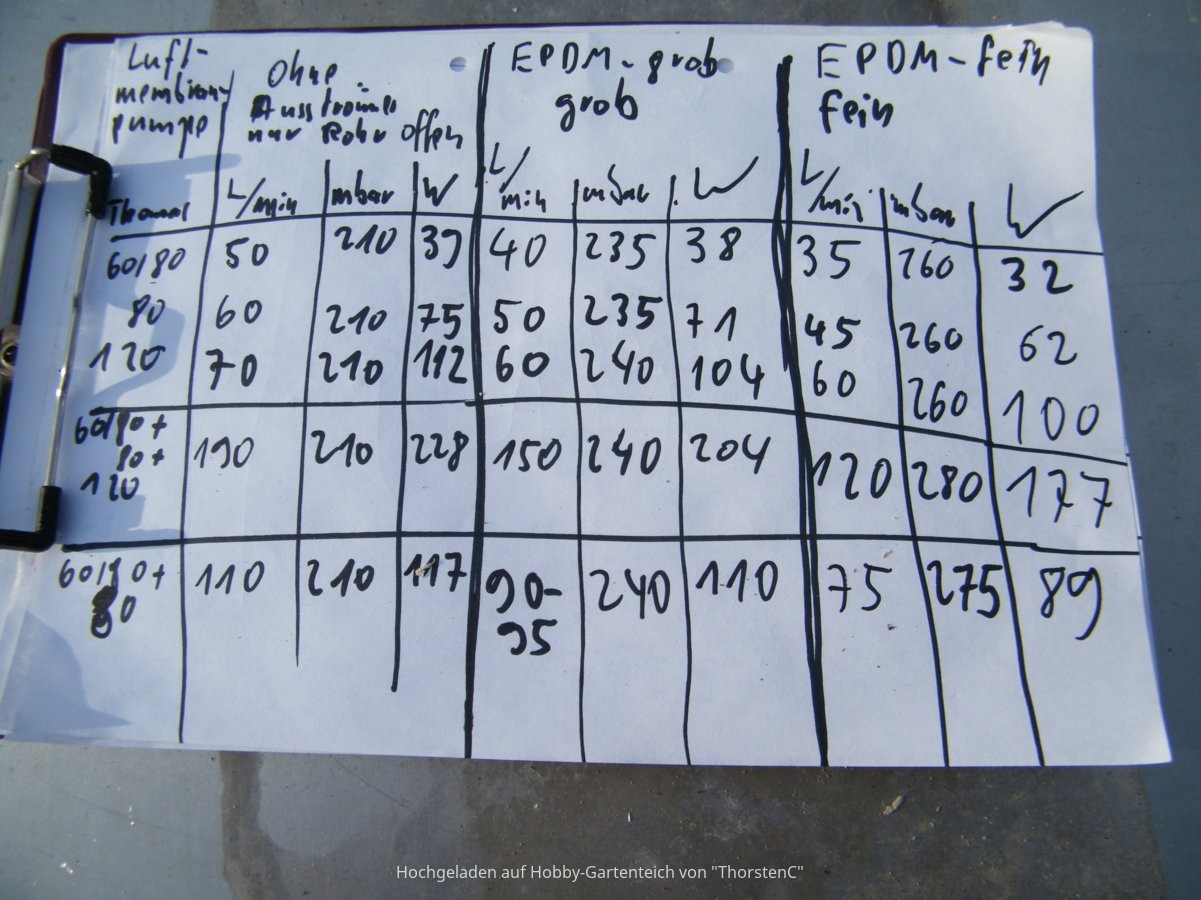 Luft-
membran
pumpe
Ohne
Ausströmer
nur Rohr offen
EPDM-grob
grob
EPDM-fein
fein
Thomas L/min mbar W L/min mbar W L/min mbar W
60/80 50 210 39 40 235 38 35 260 32
80 60 210 75 50 235 71 45 260 62
120 70 210 112 60 240 104 60 260 100
60/80+
80+
120
190 210 228 150 240 204 120 280 177
60/80+
80
110 210 117 90-
95
240 110 75 275 89
Hochgeladen auf Hobby-Gartenteich von "ThorstenC"